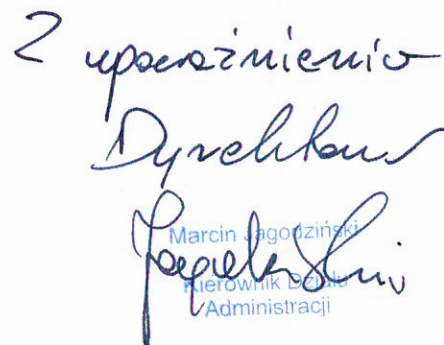 Z upoważnienia
Dyrektora
Marcin Jagodziński
Kierownik Działu
Administracji